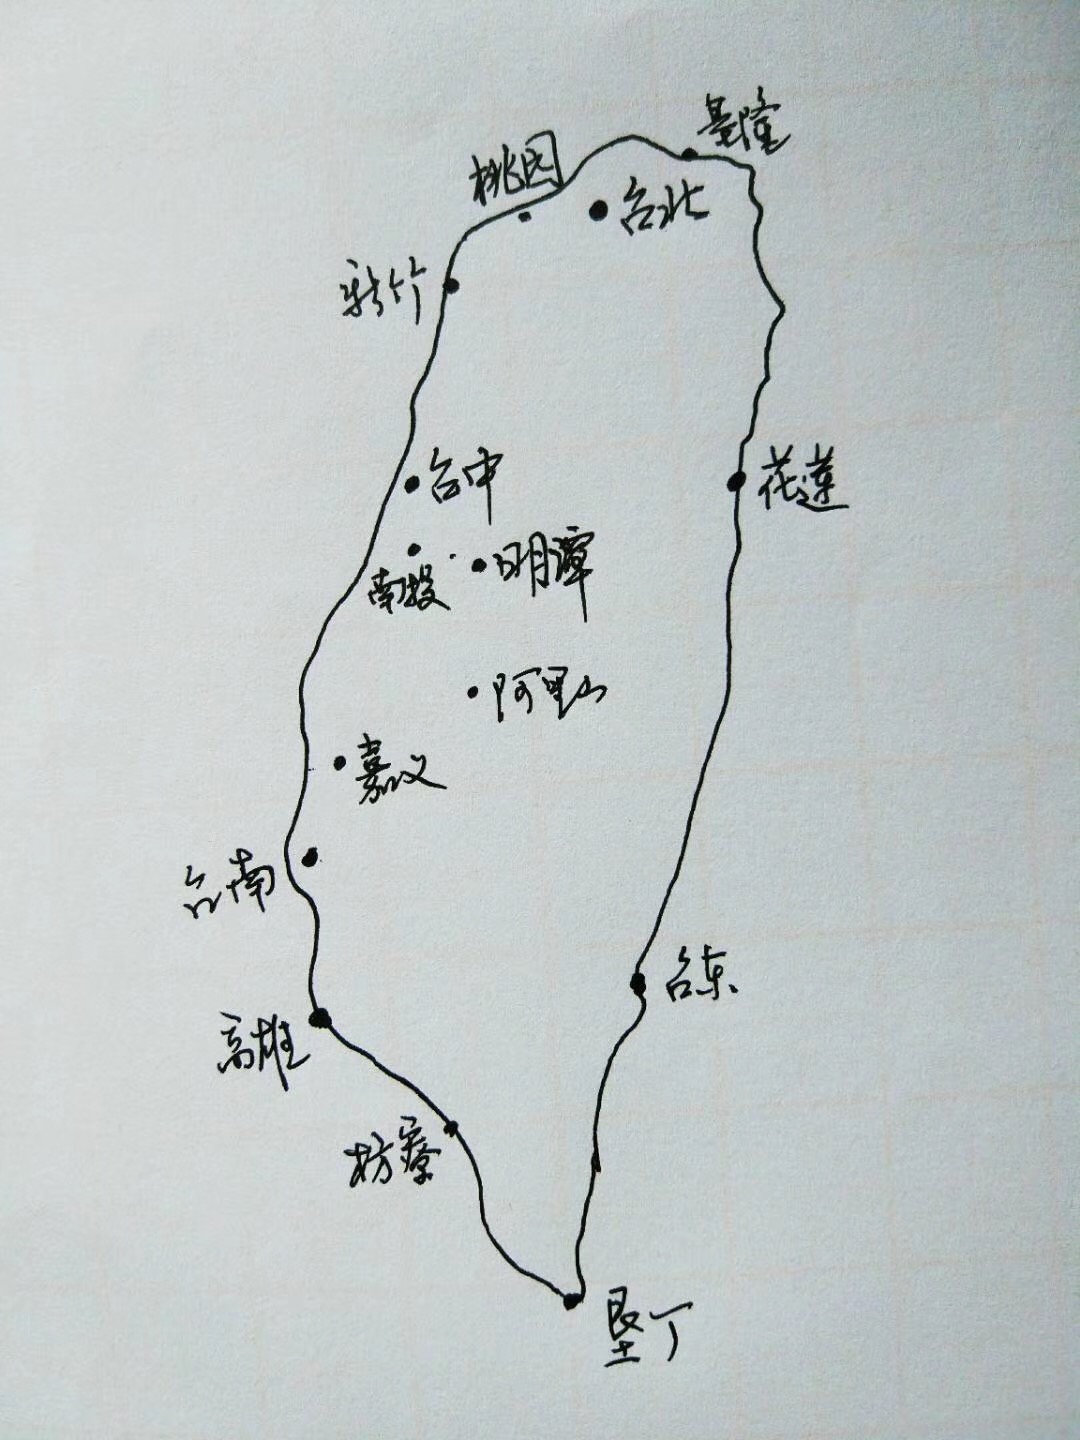 基隆
桃园
台北
新竹
台中
花莲
南投
日月潭
阿里山
嘉义
台南
台东
高雄
枋寮
垦丁